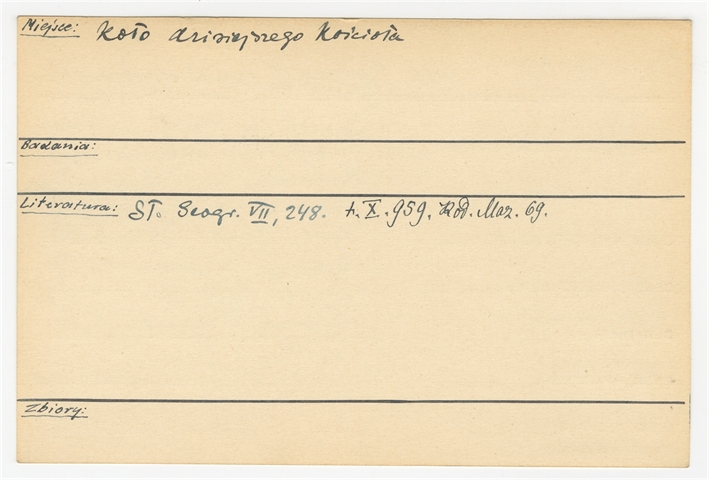 Miejsce: koło dzisiejszego kościoła
Badania:
Literatura: St. Geogr. VII, 248. t. X. 959. Kod. Maz. 69.
Zbiory: